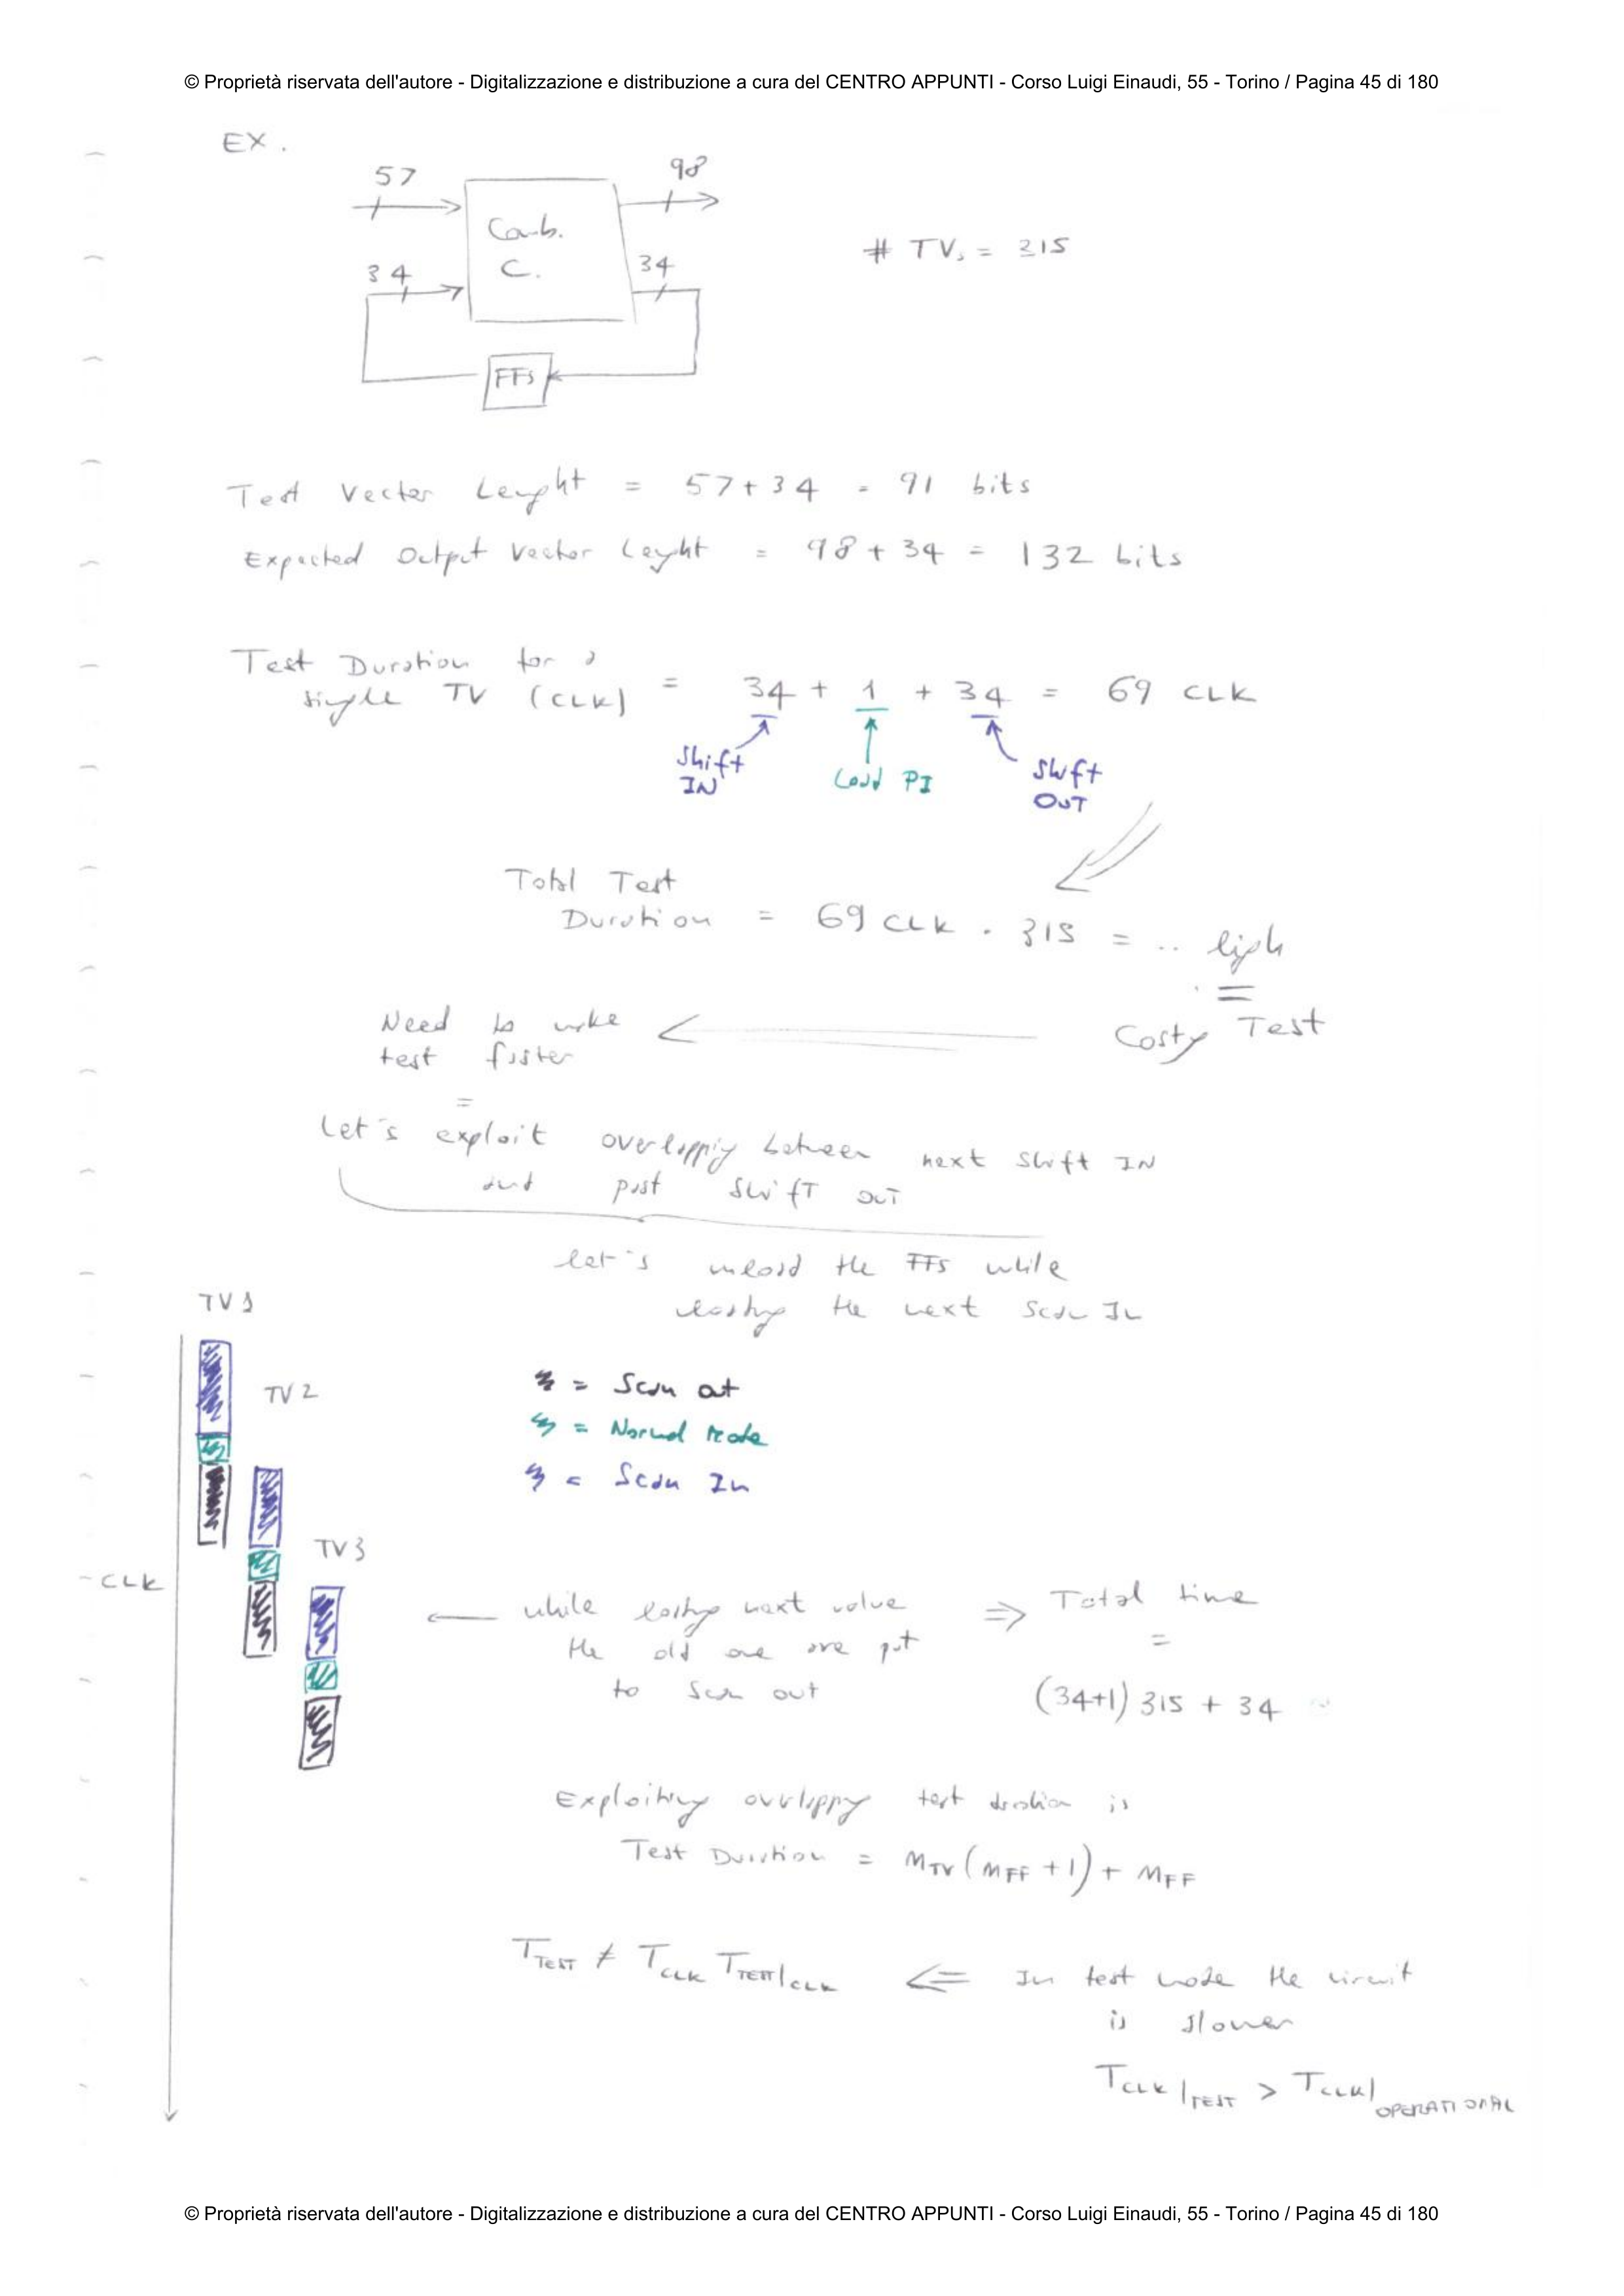 © Proprietà riservata dell'autore - Digitalizzazione e distribuzione a cura del CENTRO APPUNTI - Corso Luigi Einaudi, 55 - Torino / Pagina 45 di 180
EX.
57
98
Comb.
C.
# TVs = 315
34
34
FFs
Test Vector Lenght = 57+34 = 91 bits
Expected Output Vector Lenght = 98 + 34 = 132 bits
Test Duration for a
single TV (CLK) = 34 + 1 + 34 = 69 CLK
Shift
IN
Load PI
Shift
OUT
Total Test
Duration = 69 CLK . 315 = .. high
=
Costy Test
Need to make
test faster
=
Let's exploit overlapping between next shift IN
and past shift OUT
let's unload the FFs while
loading the next Scan In
TV1
TV2
= Scan out
= Normal Mode
= Scan In
TV3
CLK
while loading next value
the old one are put
to scan out
⇒ Total time
=
(34+1) 315 + 34
Exploiting overlapping test duration is
Test Duration = MTV (MFF + 1) + MFF
TTEST ≠ TCLK TTEST|CLK ⇐ In test mode the circuit
is slower
TCLK|TEST > TCLK|OPERATIONAL
© Proprietà riservata dell'autore - Digitalizzazione e distribuzione a cura del CENTRO APPUNTI - Corso Luigi Einaudi, 55 - Torino / Pagina 45 di 180